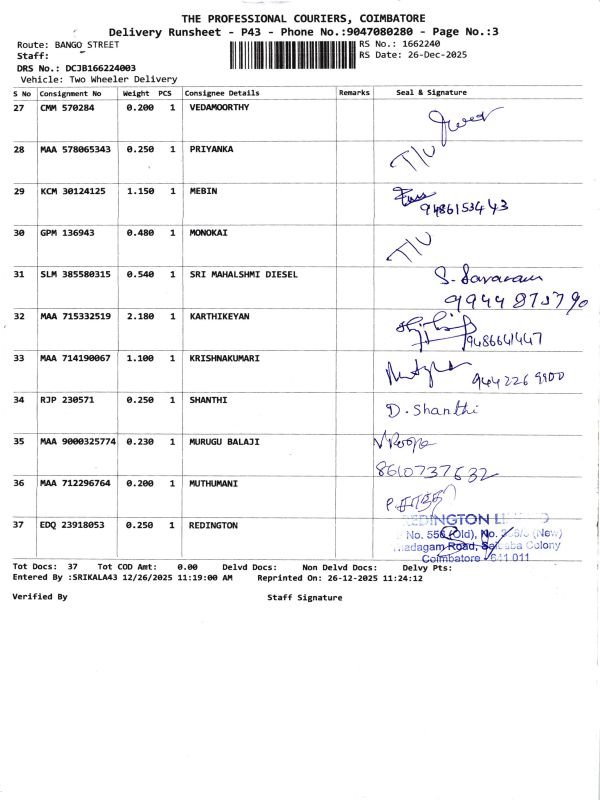 THE PROFESSIONAL COURIERS, COIMBATORE
Delivery Runsheet - P43 - Phone No.:9047080280 - Page No.:3
Route: BANGO STREET RS No.: 1662240
Staff: RS Date: 26-Dec-2025
DRS No.: DCJB166224003
Vehicle: Two Wheeler Delivery
S No Consignment No Weight PCS Consignee Details Remarks Seal & Signature
27 CMM 570284 0.200 1 VEDAMOORTHY
28 MAA 578065343 0.250 1 PRIYANKA T/U
29 KCM 30124125 1.150 1 MEBIN
9486153443
30 GPM 136943 0.480 1 MONOKAI T/U
31 SLM 385580315 0.540 1 SRI MAHALSHMI DIESEL S. Saravanan
9944873790
32 MAA 715332519 2.180 1 KARTHIKEYAN
9486641447
33 MAA 714190067 1.100 1 KRISHNAKUMARI
944226 9900
34 RJP 230571 0.250 1 SHANTHI D. Shanthi
35 MAA 9000325774 0.230 1 MURUGU BALAJI
8610737632
36 MAA 712296764 0.200 1 MUTHUMANI
37 EDQ 23918053 0.250 1 REDINGTON REDINGTON
No. 556 (Old), No. (New)
Road, Saibaba Colony
Coimbatore 641 011
Tot Docs: 37 Tot COD Amt: 0.00 Delvd Docs: Non Delvd Docs: Delvy Pts:
Entered By :SRIKALA43 12/26/2025 11:19:00 AM Reprinted On: 26-12-2025 11:24:12
Verified By Staff Signature